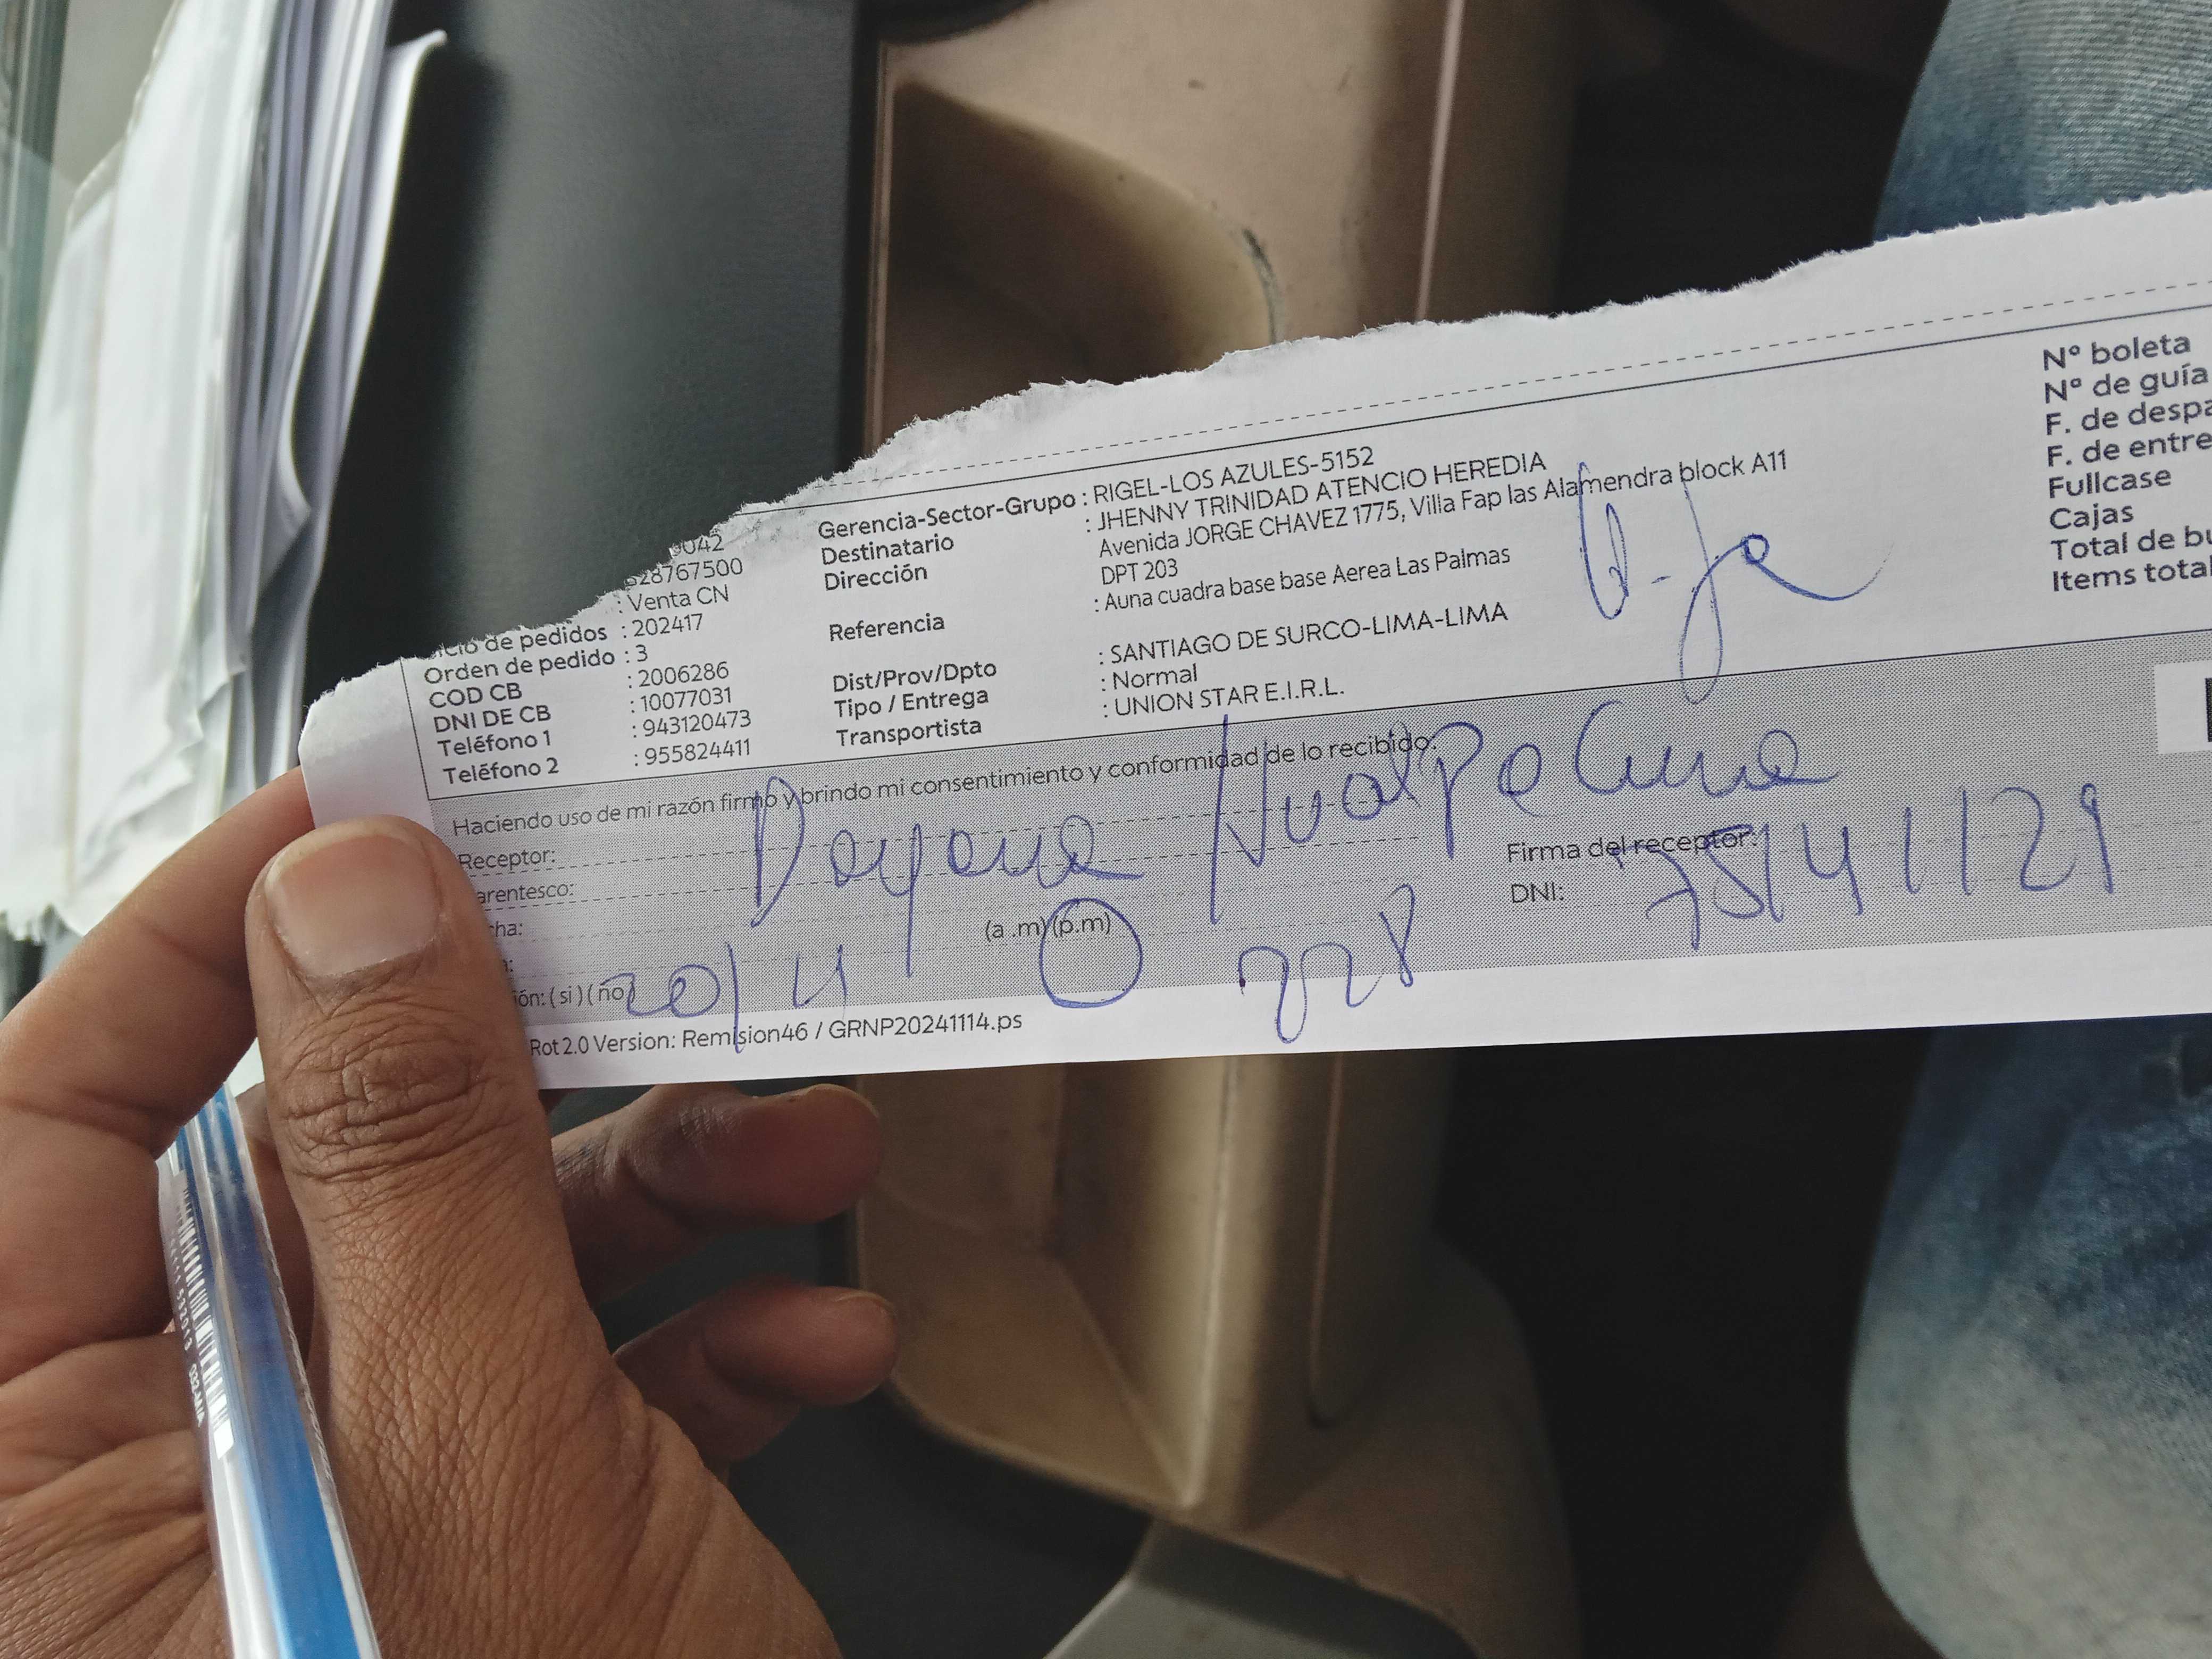 9042
528767500
: Venta CN
de pedidos : 202417
Orden de pedido : 3
COD CB : 2006286
DNI DE CB : 10077031
Teléfono 1 : 943120473
Teléfono 2 : 955824411
Gerencia-Sector-Grupo : RIGEL-LOS AZULES-5152
Destinatario : JHENNY TRINIDAD ATENCIO HEREDIA
Dirección Avenida JORGE CHAVEZ 1775, Villa Fap las Alamendra block A11
DPT 203
Referencia : Auna cuadra base base Aerea Las Palmas
Dist/Prov/Dpto : SANTIAGO DE SURCO-LIMA-LIMA
Tipo / Entrega : Normal
Transportista : UNION STAR E.I.R.L.
N° boleta
N° de guía
F. de despa
F. de entre
Fullcase
Cajas
Total de bu
Items total
Haciendo uso de mi razón firmo y brindo mi consentimiento y conformidad de lo recibido:
Receptor: Dayana Hualpa
arentesco:
cha:
(a .m) (p.m)
Firma del receptor:
DNI: 75141129
20/11 228
ión: ( si ) ( no )
Rot 2.0 Version: Remision46 / GRNP20241114.ps